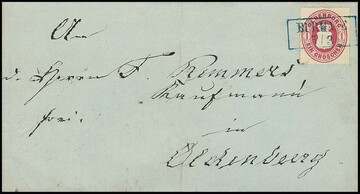 An
d. Herrn F. Remmers
Kaufmann
frei.
in
Oldenburg
OLDENBURG
EIN GROSCHEN